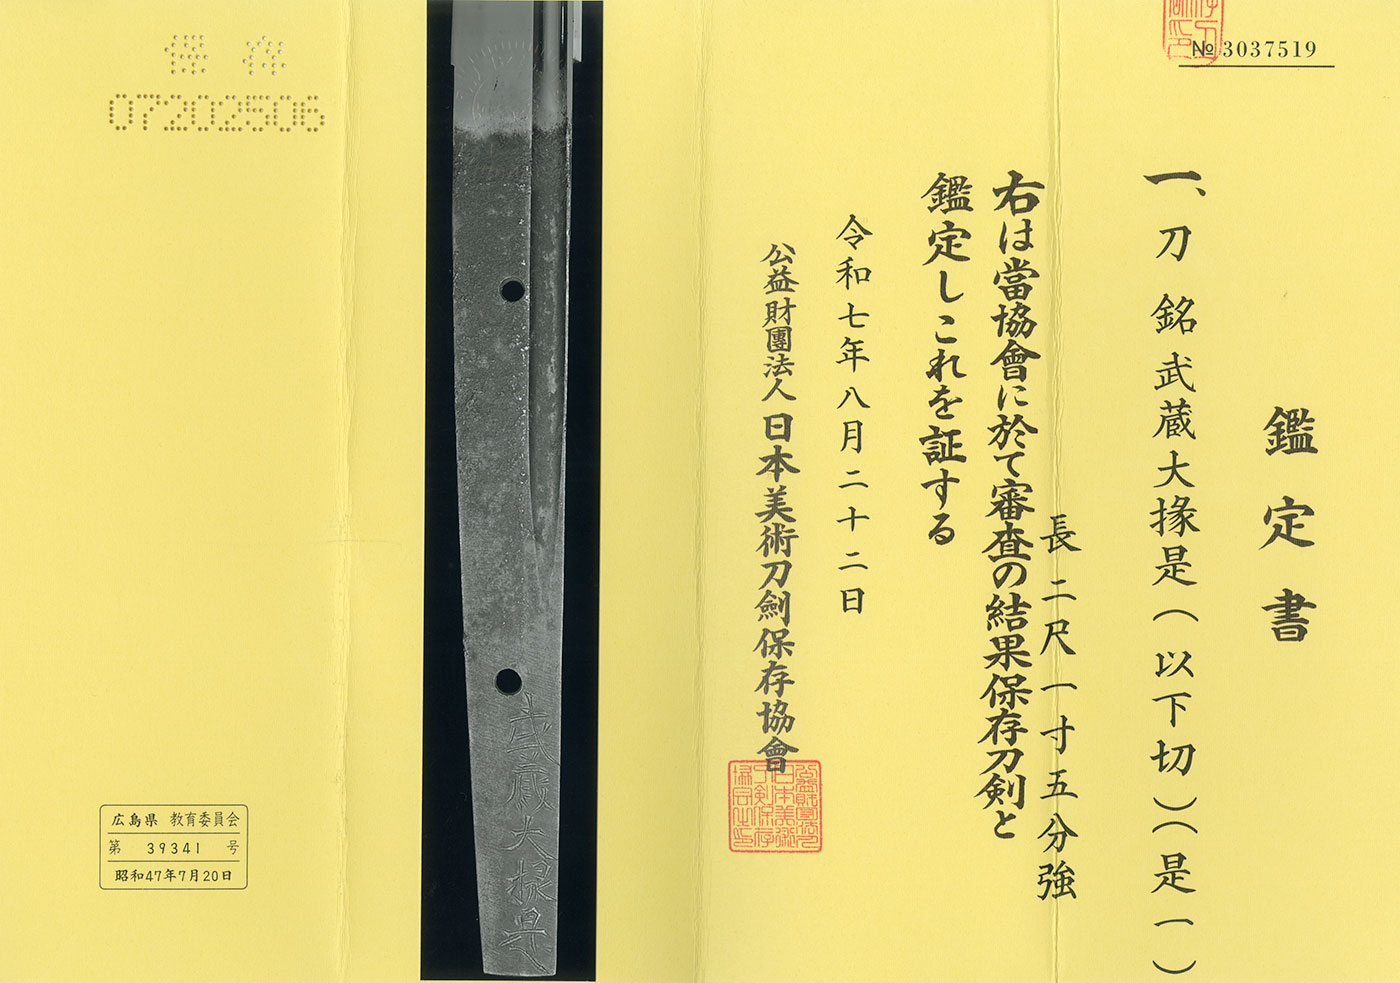 № 3037519
鑑定書
一、刀 銘 武蔵大掾是(以下切)(是一)
長二尺一寸五分強
右は當協會に於て審査の結果保存刀剣と
鑑定しこれを証する
令和七年八月二十二日
公益財團法人日本美術刀劍保存協會
武蔵大掾是
保存
07202506
広島県 教育委員会
第 39341 号
昭和47年7月20日